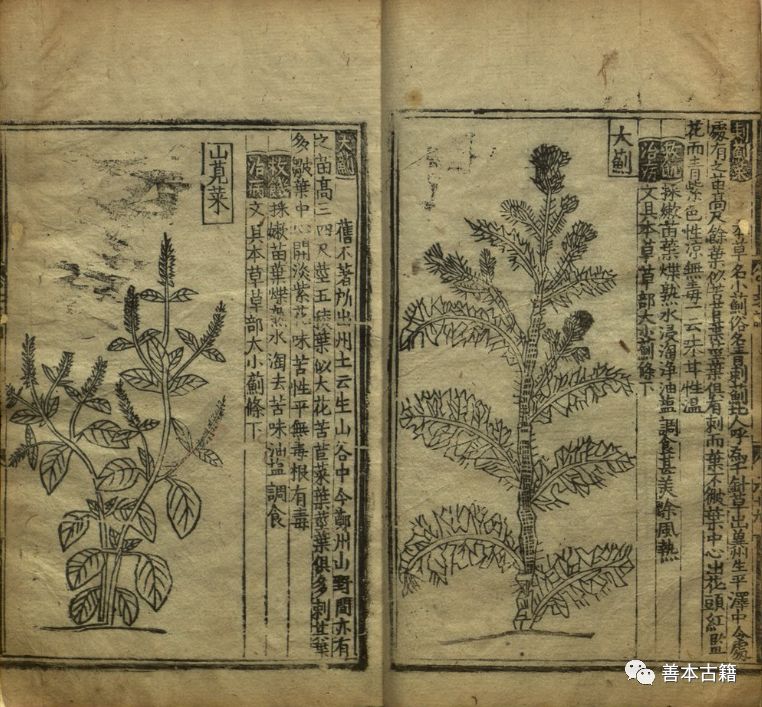 刺薊菜 本草名小薊俗名青刺薊北人呼為千針草出冀州生平澤中今處
處有之苗高尺餘葉似苦苣葉莖葉俱有刺而葉不皺葉中心出花頭紅藍
花而青紫色性涼無毒一云味甘性溫
救飢 採嫩苗葉煠熟水浸淘淨油鹽調食甚美除風熱
治病 文具本草草部大小薊條下
大薊
大薊 舊不著所出州土云生山谷中今鄭州山野間亦有
之苗高三四尺莖五稜葉似大花苦苣菜葉莖葉俱多刺其葉
多皺葉中心開淡紫花味苦性平無毒根有毒
救飢 採嫩苗葉煠熟水淘去苦味油鹽調食
治病 文具本草草部大小薊條下
山莧菜
善本古籍